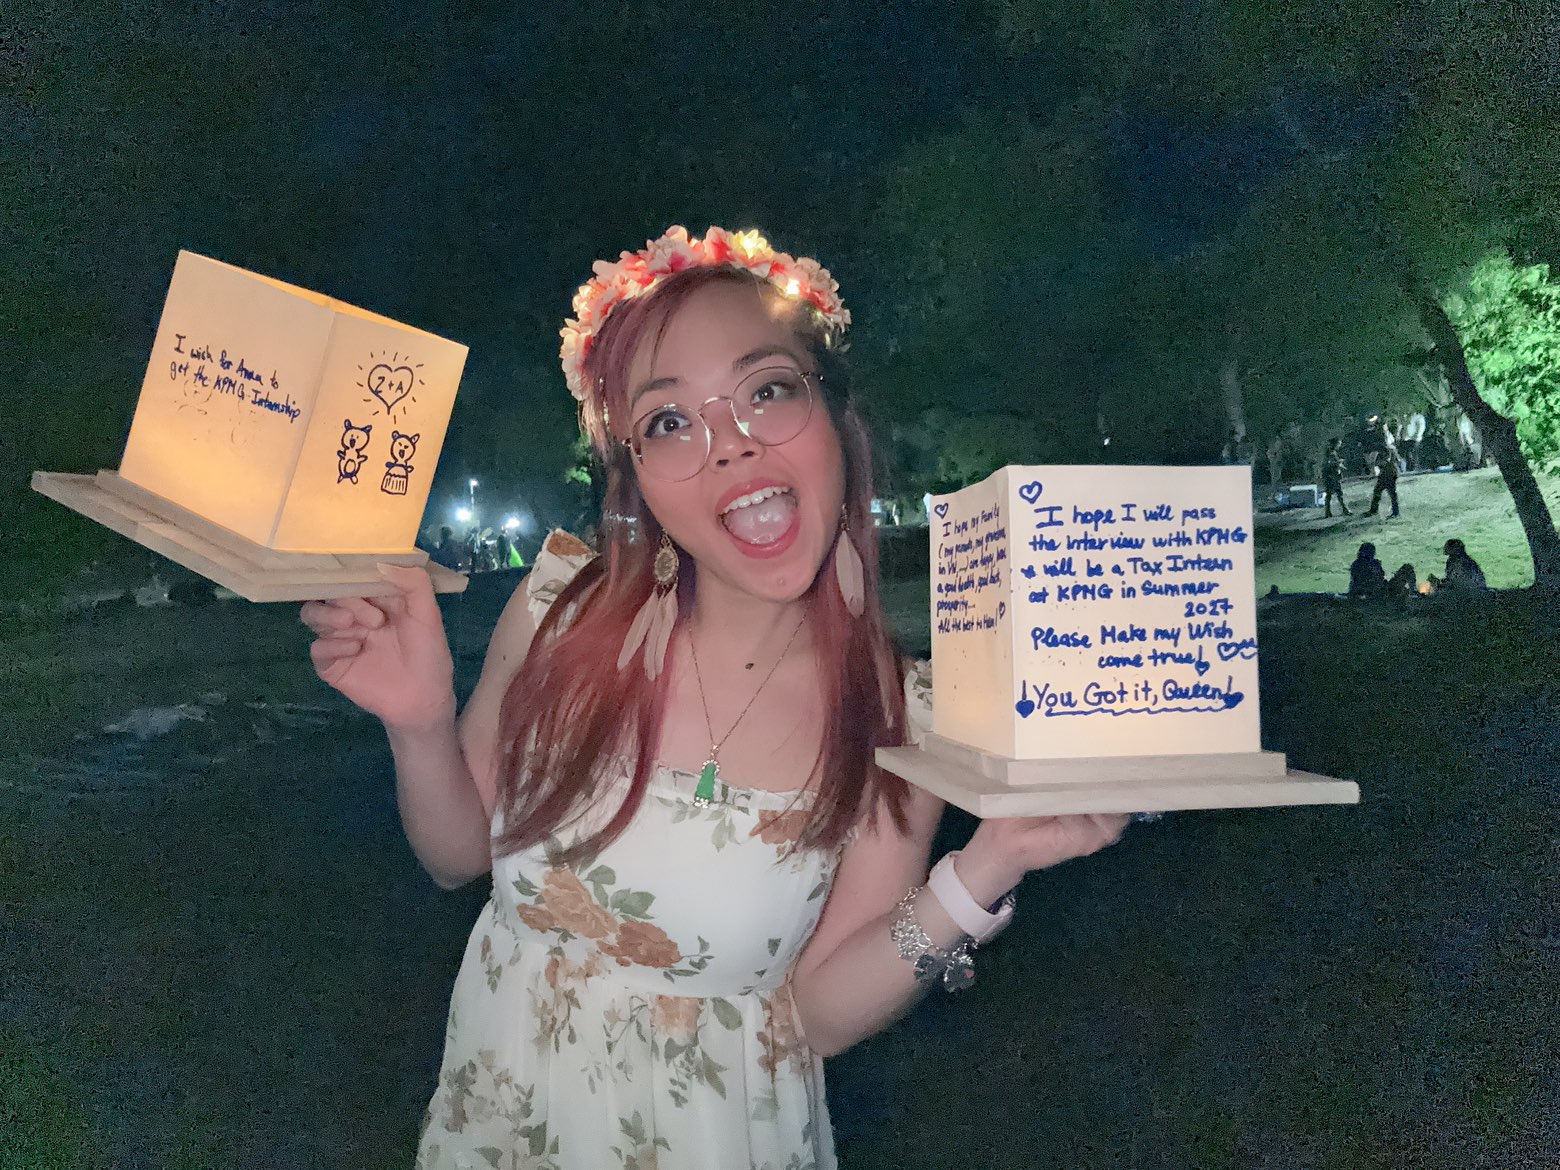 I wish for Anna to
get the KPMG Internship
Z+A
I hope my Family
(my parents, my grandma
in VN,...) are happy, have
a good health, good luck,
prosperity...
All the best to them!
I hope I will pass
the interview with KPMG
& will be a Tax Intern
at KPMG in Summer
2027
Please Make my Wish
come true!
!You Got it, Queen!